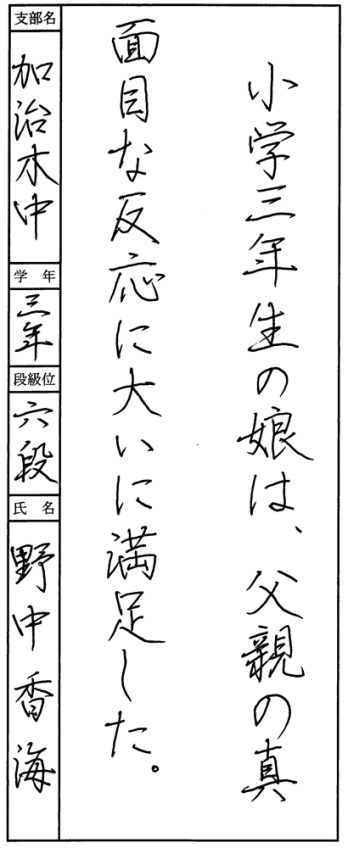 小学三年生の娘は、父親の真
面目な反応に大いに満足した。
支部名
加治木中
学年
三年
段級位
六段
氏名
野中香海